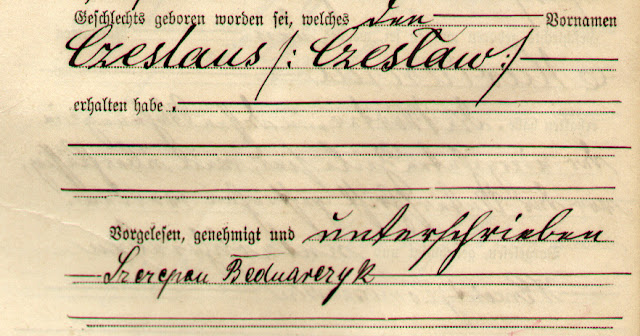 Geschlechts geboren worden sei, welches den Vornamen
Czeslaus /: Czesław :/
erhalten habe.
Vorgelesen, genehmigt und unterschrieben
Szczepan Bednarczyk